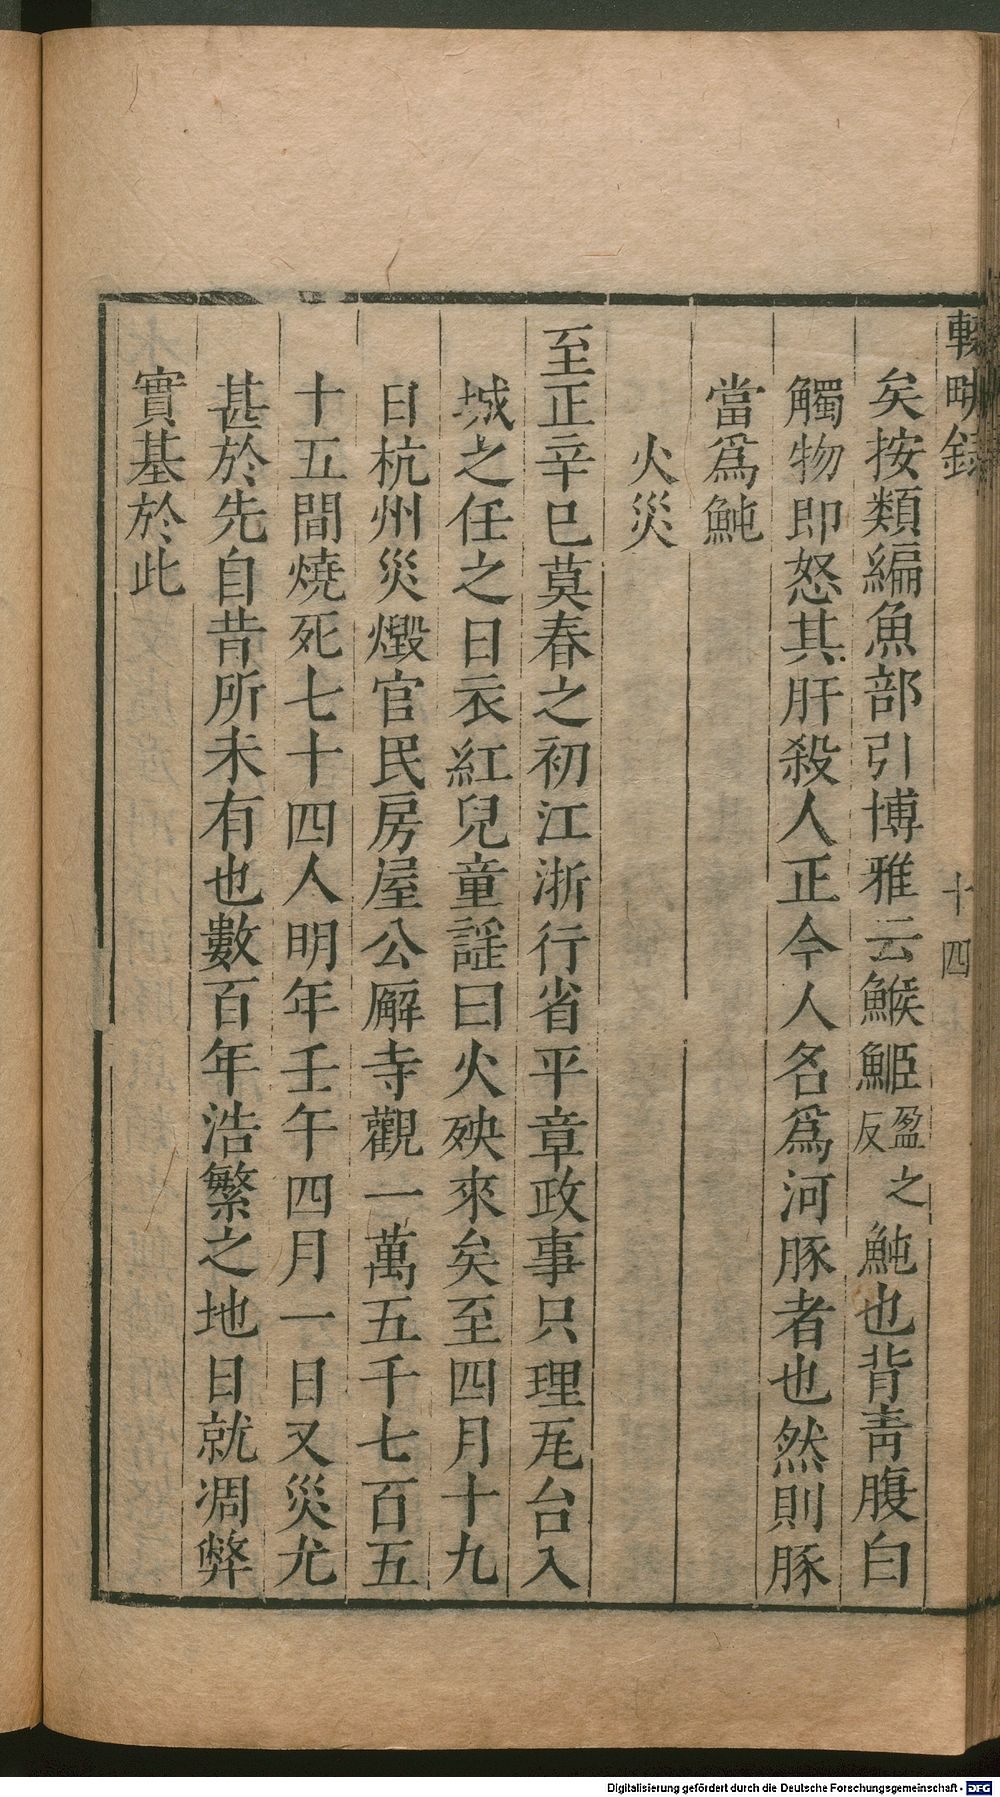 輟畊録
十四
矣按類編魚部引博雅云鯸䱌盈之反魨也背青腹白
觸物即怒其肝殺人正今人名爲河豚者也然則豚
當爲魨
火災
至正辛巳莫春之初江浙行省平章政事只理瓦台入
城之任之日衣紅兒童謡曰火殃來矣至四月十九
日杭州災燬官民房屋公廨寺觀一萬五千七百五
十五間燒死七十四人明年壬午四月一日又災尤
甚於先自昔所未有也數百年浩繁之地日就凋弊
實基於此
Digitalisierung gefördert durch die Deutsche Forschungsgemeinschaft - DFG